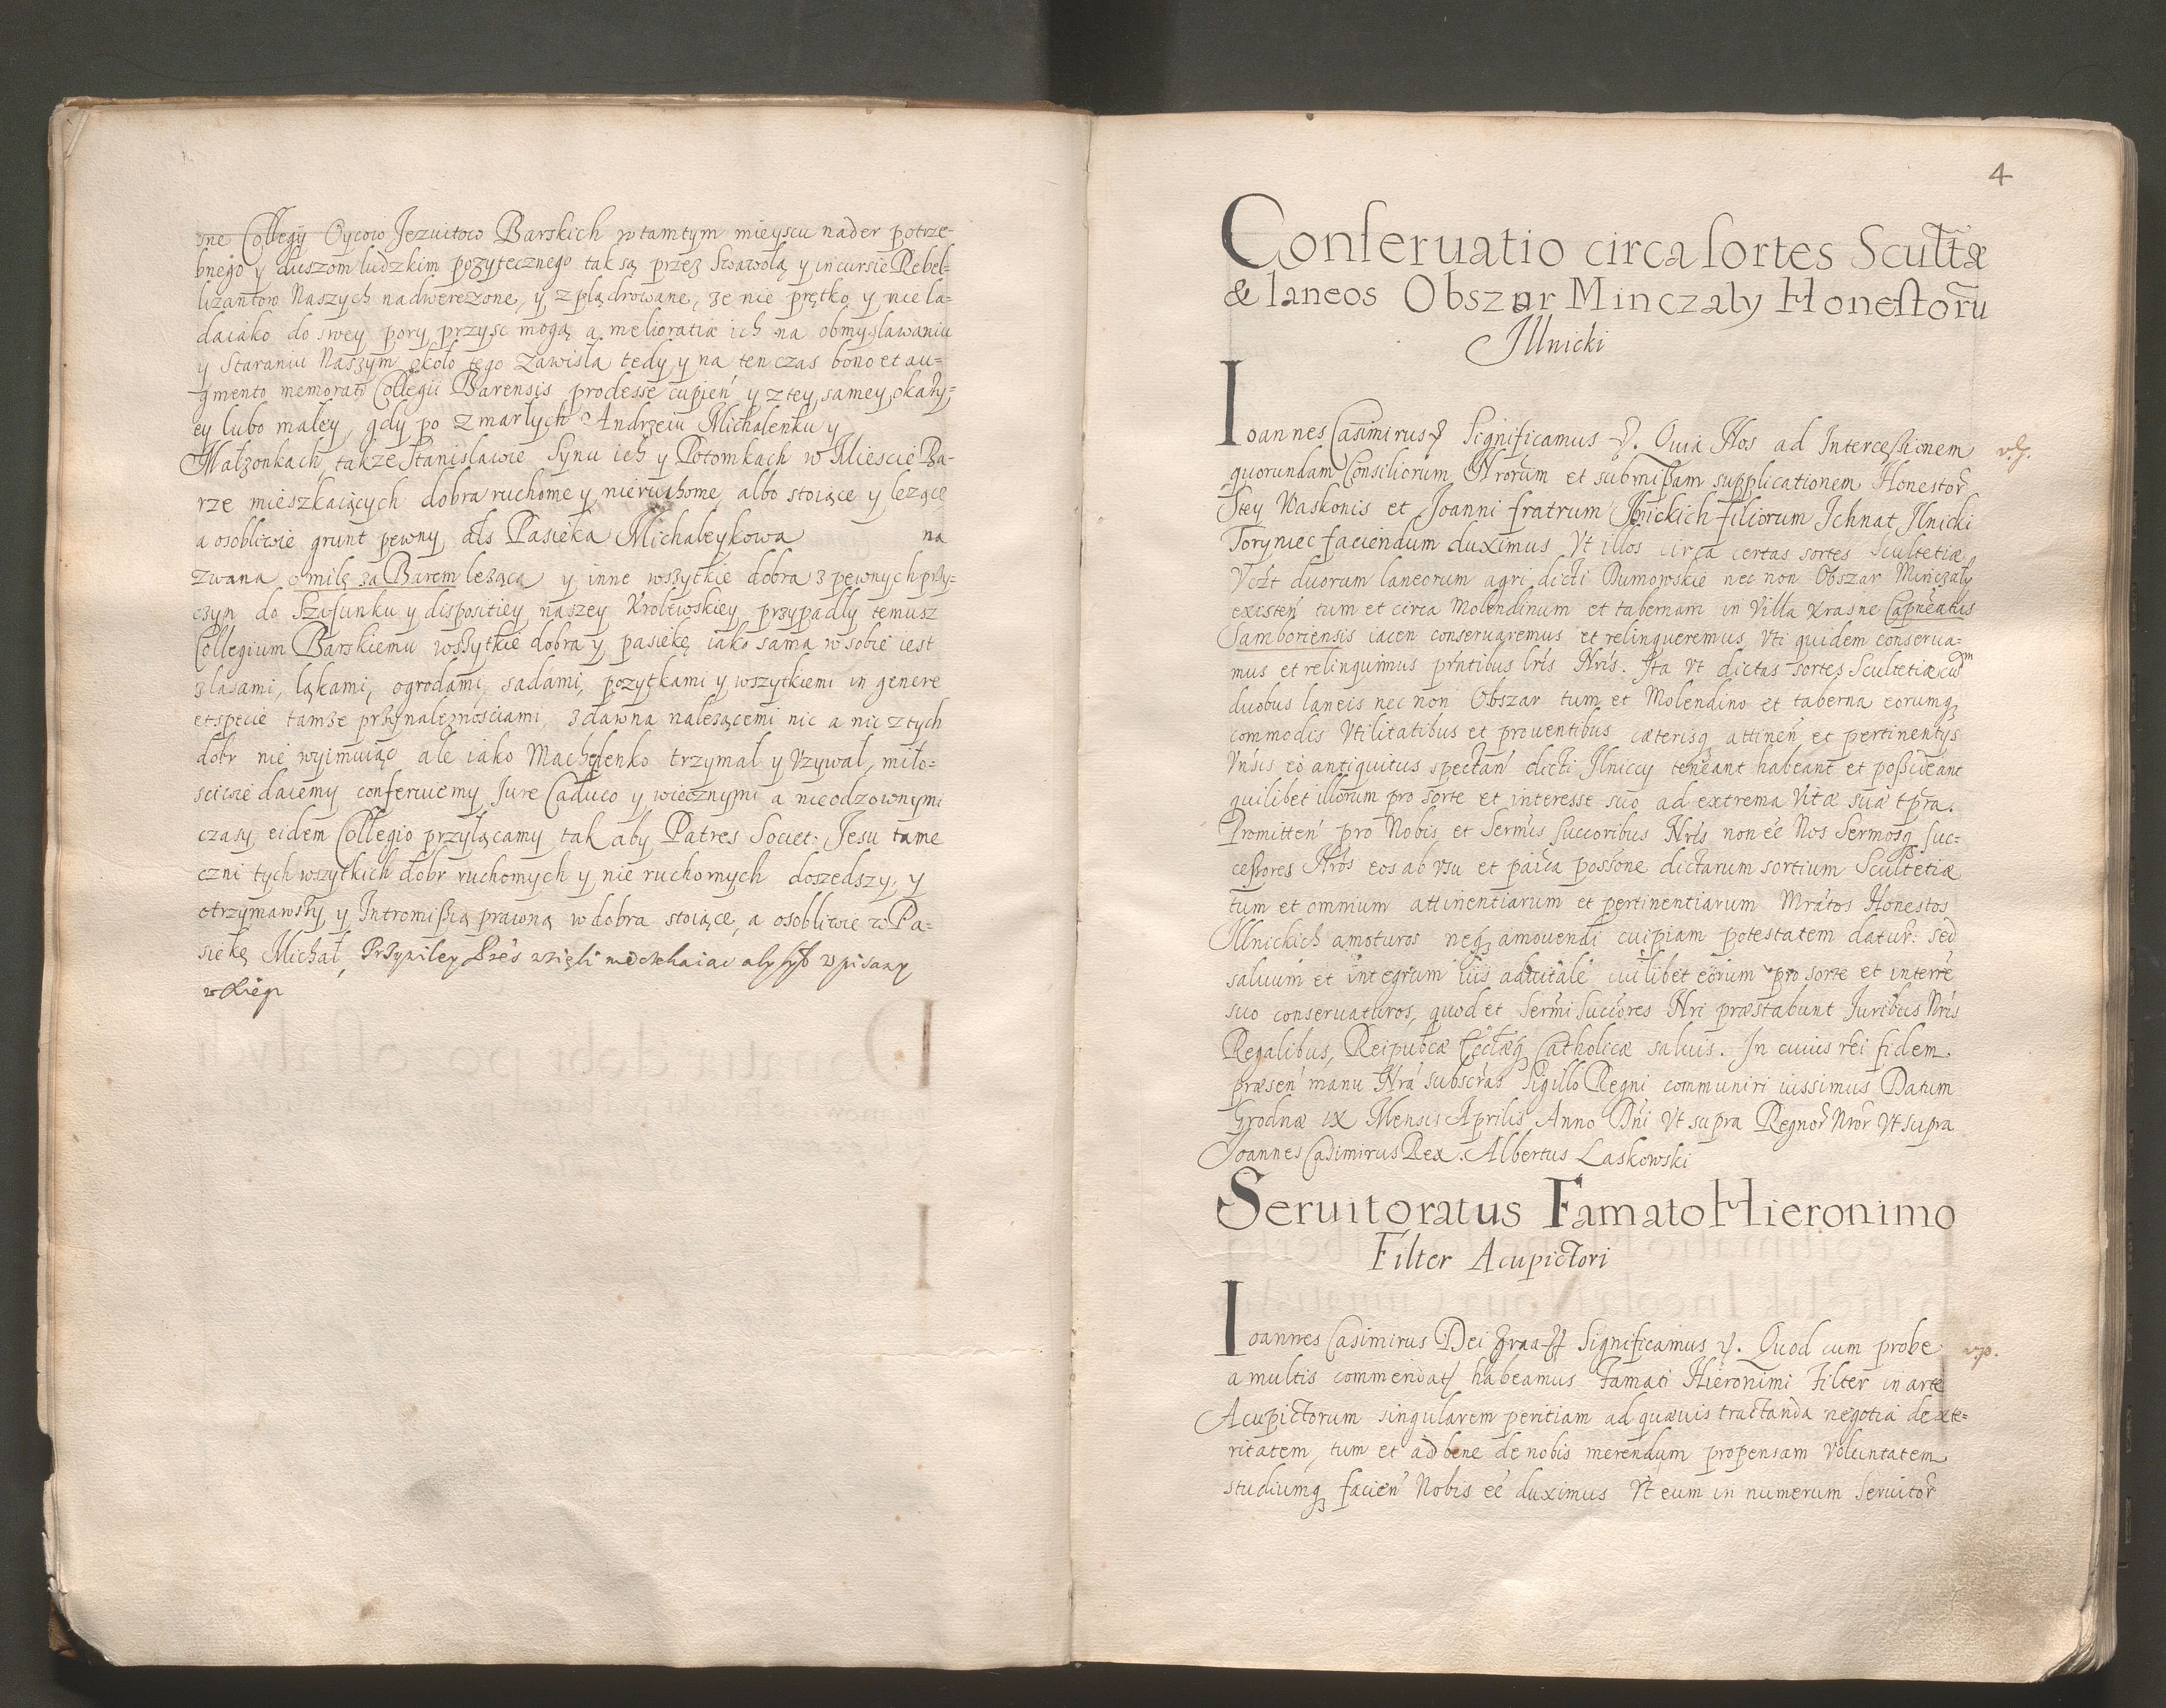 one Collegÿ Oycow Jezuitow Barskich w tamtym mieyscu nader potrze-
bnego y duszom ludzkim pozytecznego tak są przez Swawolą y incursie Rebel-
lizantow Naszych nadwerezone, y zplądrowane, ze nie prętko y nie la-
daiako do swey pory przysc mogą a melioratia ich na obmyslawaniu
y Staraniu Naszym około tego zawisła tedy y na ten czas bono et au-
gmento memorati Collegii Barensis prodesse cupień y z tey samey okaży-
ey lubo małey, gdy po zmarłych Andrzeiu Michalenku y
Małzonkach, takze Stanislawie Synu ich y Potomkach w Miescie Ba-
rze mieszkaiących dobra ruchome y nieruchome albo stoiące y lezące
a osobliwie grunt pewny als Pasieka Michaleykowa na
zwana o milę za Barem lezącą y inne wszytkie dobra z pewnych przy-
czyn do Szafunku y dispositiey naszey Krolewskiey przypadły temusz
Collegium Barskiemu wszytkie dobra y pasiekę iako sama w sobie iest
z lasami, ląkami, ogrodami, sadami, pozytkami y wszytkiemi in genere
et specie tamze przynaleznosciami, zdawna nalezącemi nic a nic z tych
dobr nie wyimuiąc ale iako Machelenko trzymał y Vzywal, miło-
sciwie daiemy conferuiemy Jure Caduco y wiecznymi a nieodzownymi
czasy eidem Collegio przyłącamy tak aby Patres Societ: Jesu tame
czni tych wszytkich dobr ruchomych y nie ruchomych doszedszy, y
otrzymawszy y Intromissią prawną w dobra stoiące, a osobliwie w Pa-
siekę Michał, Przywiley wzięli vpisany
4
Conseruatio circa sortes Scultæ
& laneos Obszar Minczaly Honestorũ
Illnicki
Ioannes Casimirus Significamus. Quia Nos ad Intercessionem
quorundam Consiliorum Nrorum et submissam supplicationem Honestor
Stey Waskonis et Joanni fratrum Ilnickich filiorum Jchnat Jlnicki
Toryniec faciendum duximus Vt illos circa certas sortes Scultetiæ
Vczt duorum laneorum agri dicti Dumowskie nec non Obszar Minczaly
existeń tum et circa Molendinum et tabernam in Villa Krasne Capneatus
Samboriensis iacen conseruaremus et relinqueremus, Vti quidem conserua-
mus et relinquimus pntibus lris Nris. Ita Vt dictas sortes Scultetiæ cum
duobus laneis nec non Obszar tum et Molendino et taberna eorumq
commodis Vtilitatibus et prouentibus cæterisq attineń et pertinentÿs
Vnsis eo antiquitus spectań dicti Jlniccy teneant habeant et possideant
quilibet illorum pro sorte et interesse suo ad extrema Vitæ suæ tpra.
Promitteń pro Nobis et Sermis succoribus Nris non eé Nos Sermosq suc-
cessores Nros eos ab vsu et paica possone dictarum sortium Scultetiæ
tum et omnium attinentiarum et pertinentiarum Mratos Honestos
Illnickich amoturos neq amouendi cuipiam potestatem datur: sed
saluum et integrum iis aduitale cuilibet eorum pro sorte et interre
suo conseruaturos, quod et Sermi Succores Nri præstabunt Juribus Nris
Regalibus, Reipubcæ Ecclæq Catholicæ saluis. In cuius rei fidem
præsen manu Nra subscras Sigillo Regni communiri iussimus Datum
Grodnæ IX Mensis Aprilis Anno Dni Vt supra Regnor Nror Vt supra
Joannes Casimirus Rex. Albertus Laskowski
Seruitoratus Famato Hieronimo
Filter Acupictori
Ioannes Casimirus Dei Graa Significamus. Quod cum probe
a multis commendat habeamus Famati Hieronimi Filter in arte
Acupictorum singularem peritiam ad quæuis tractanda negotia dexte-
ritatem, tum et ad bene de nobis merendum propensam Voluntatem
studiumq facień Nobis eé duximus Vt eum in numerum Seruitor